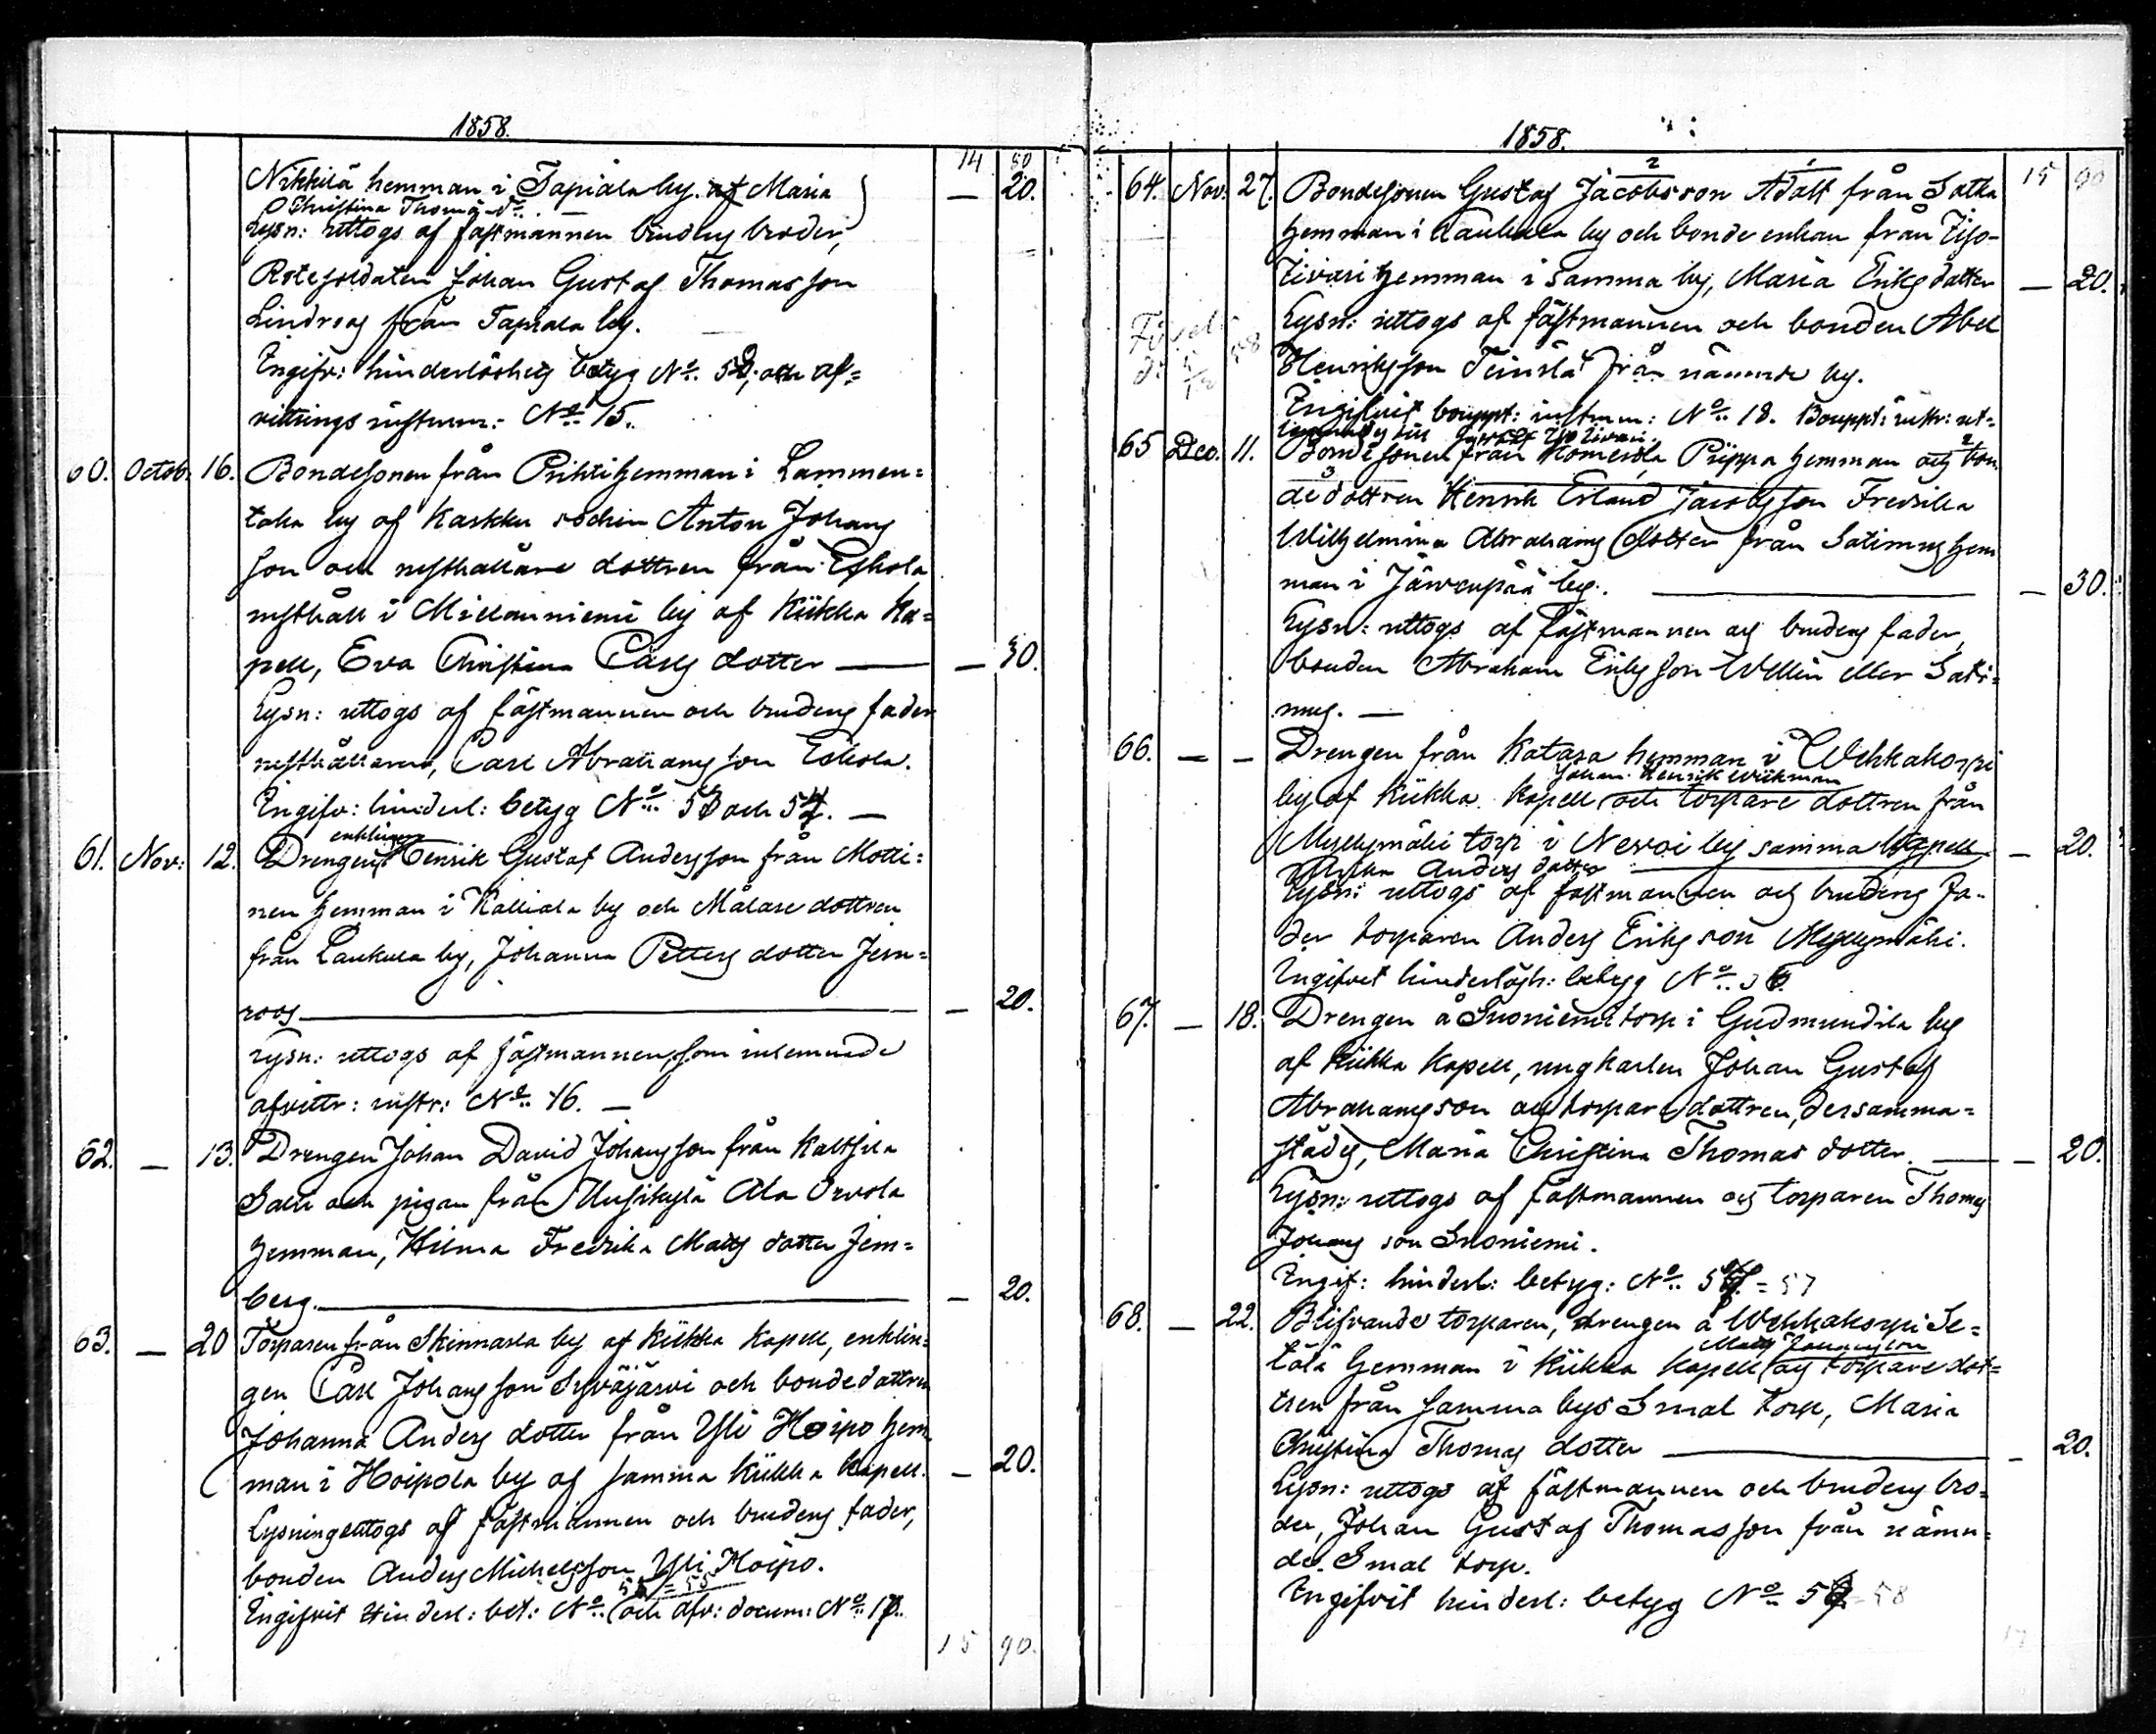 1858.
14 50
Nikkilä hemman i Tapiala by. af Maria — 20.
Christina Thomæ dr.
Lysn: uttogs af fästmannen brudens broder,
Rotesoldaten Johan Gustaf Thomasson
Lindroos från Tapiala by.
Ingifv: hinderlöshets betyg No. 52, och af=
vittrings instrum: No. 15.
60. Octob. 16. Bondesonen från Prihti hemman i Lammen=
taka by af Karkku sochn Anton Johans
son och rusthållare dottren från Eskola
rusthåll i Millaniemi by af Kiikka Ka=
pell, Eva Christina Carls dotter — — 30.
Lysn: uttogs af fästmannen och brudens fader
rusthållaren, Carl Abrahamsson Eskola.
Ingifv: hinderl: betyg No. 53 och 54. —
enklingen
61. Nov: 12. Drengen Henrik Gustaf Andersson från Motti=
nen hemman i Kalliala by och Målare dottren
från Laukula by, Johanna Petters dotter Jern=
roos — — 20.
Lysn: uttogs af fästmannen, som inlemnade
afvittr: instr: No. 16. —
62. — 13. Drengen Johan David Johansson från Kaltsila
Salli och pigan från Uusikylä Ala Orvola
hemman, Hilma Fredrika Matts dotter Jern=
berg. — — 20.
63. — 20 Torparen från Skinnarla by af Kiikka Kapell, enklin=
gen Carl Johansson Syväjärvi och bondedottren
Johanna Anders dotter från Yli Hoipo hem
man i Hoipola by af samma Kiikka Kapell. — 20.
Lysning uttogs af fästmannen och brudens fader,
bonden Anders Michelsson Yli Hoipo.
55 = 55
Ingifvit Hinderl: bet: No. och afv: docum: No. 17.
15 90.
1858.
15 90
2 1
64. Nov. 27. Bondesonen Gustaf Jacobsson Adolf från Satka
hemman i Kaukola by och bonde enkan från Iso-
Iivari hemman i samma by, Maria Eriks dotter — 20.
Lysn: uttogs af fästmannen och bonden Abel
Henriksson Teinilä från nämnde by.
Ingifvit bouppt: instrum: No. 18. Bouppt: instr: ut=
65 Dec. 11. Bondesonen från Piippa hemman och bon
dedottren Henrik Erland Jacobsson Fredrika
Wilhelmina Abrahams dotter från Satimus hem
man i Järvenpää by. — — 30.
Lysn: uttogs af fästmannen och brudens fader,
bonden Abraham Eriksson Wellin eller Sati=
mus. —
66. — — Drengen från Katara hemman i Wehkakorpi
Johan Henrik Wikman
by af Kiikka Kapell och torpare dottren från
Myllymäki torp i Nevoi by samma Kapell — 20.
Anders dotter
Lysn: uttogs af fästmannen och brudens fa-
der torparen Anders Eriksson Myllymäki.
Ingifvet hinderlösh: betyg No. 56.
67. — 18. Drengen å Suoniemi torp i Gudmundila by
af Kiikka Kapell, ungkarlen Johan Gustaf
Abrahamsson och torpare dottren, dersamma=
städes, Maria Christina Thomas dotter. — — 20.
Lysn: uttogs af fästmannen och torparen Thomas
Johansson Suoniemi.
Ingif: hinderl: betyg: No. 57 = 57
68. — 22. Blifvande torparen, drengen å Wehkakorpi Se=
Matts Johansson
tälä hemman i Kiikka Kapell och torpare dot=
tren från samma bys Smal torp, Maria
Christina Thomas dotter — — 20.
Lysn: uttogs af fästmannen och brudens bro=
der, Johan Gustaf Thomasson från nämn=
de Smal torp.
Ingifvit hinderl: betyg No. 58 = 58
17